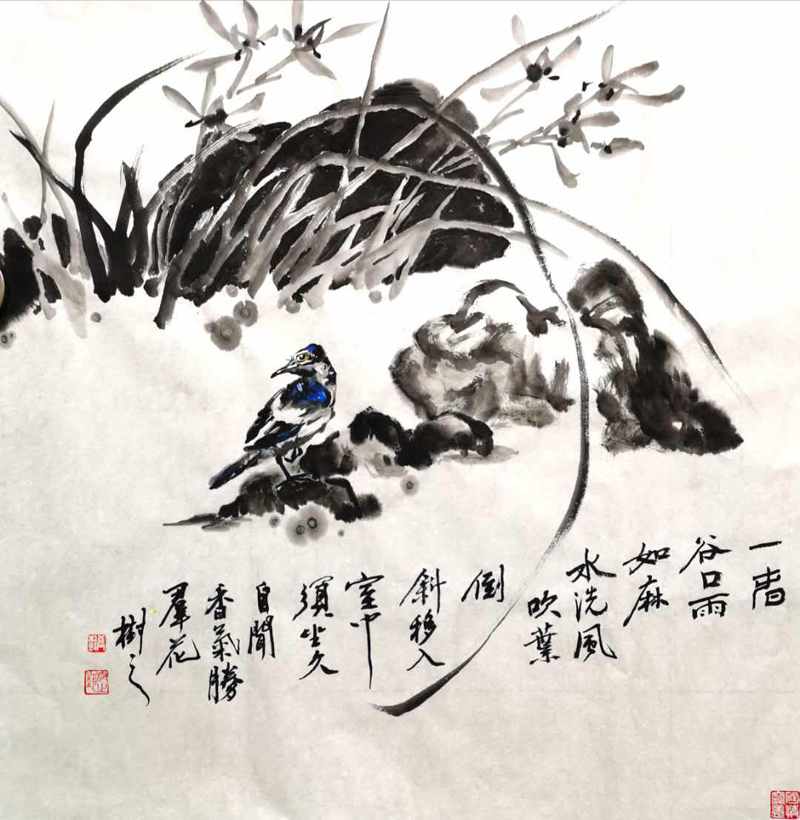 一春
谷口雨
如麻
水洗風
吹葉
倒
斜移入
室中
須坐久
自聞
香氣勝
羣花
樹之